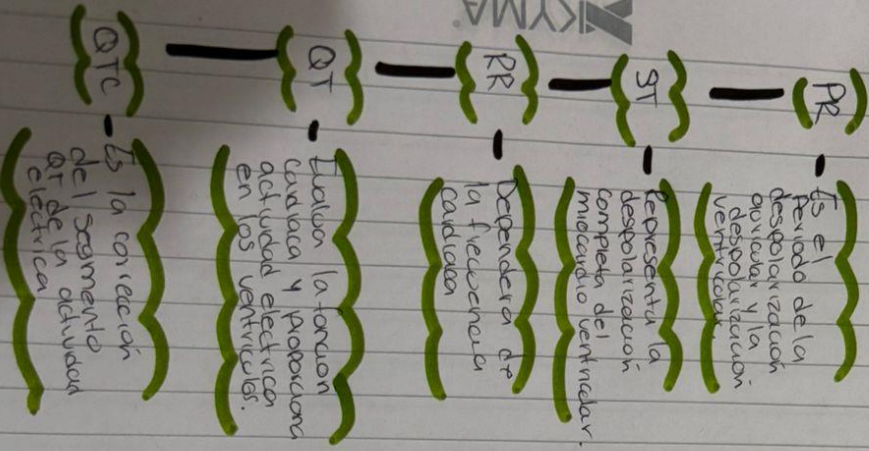 KYMA
PR
Es el
periodo de la
despolarización
auricular y la
despolarización
ventricular
ST
Representa la
despolarización
completa del
miocardio ventricular.
RR
Dependera de
la frecuencia
cardiaca
QT
Evalua la función
cardiaca y proporciona
actividad electrica
en los ventriculos.
QTC
Es la corrección
del segmento
QT de la actividad
electrica